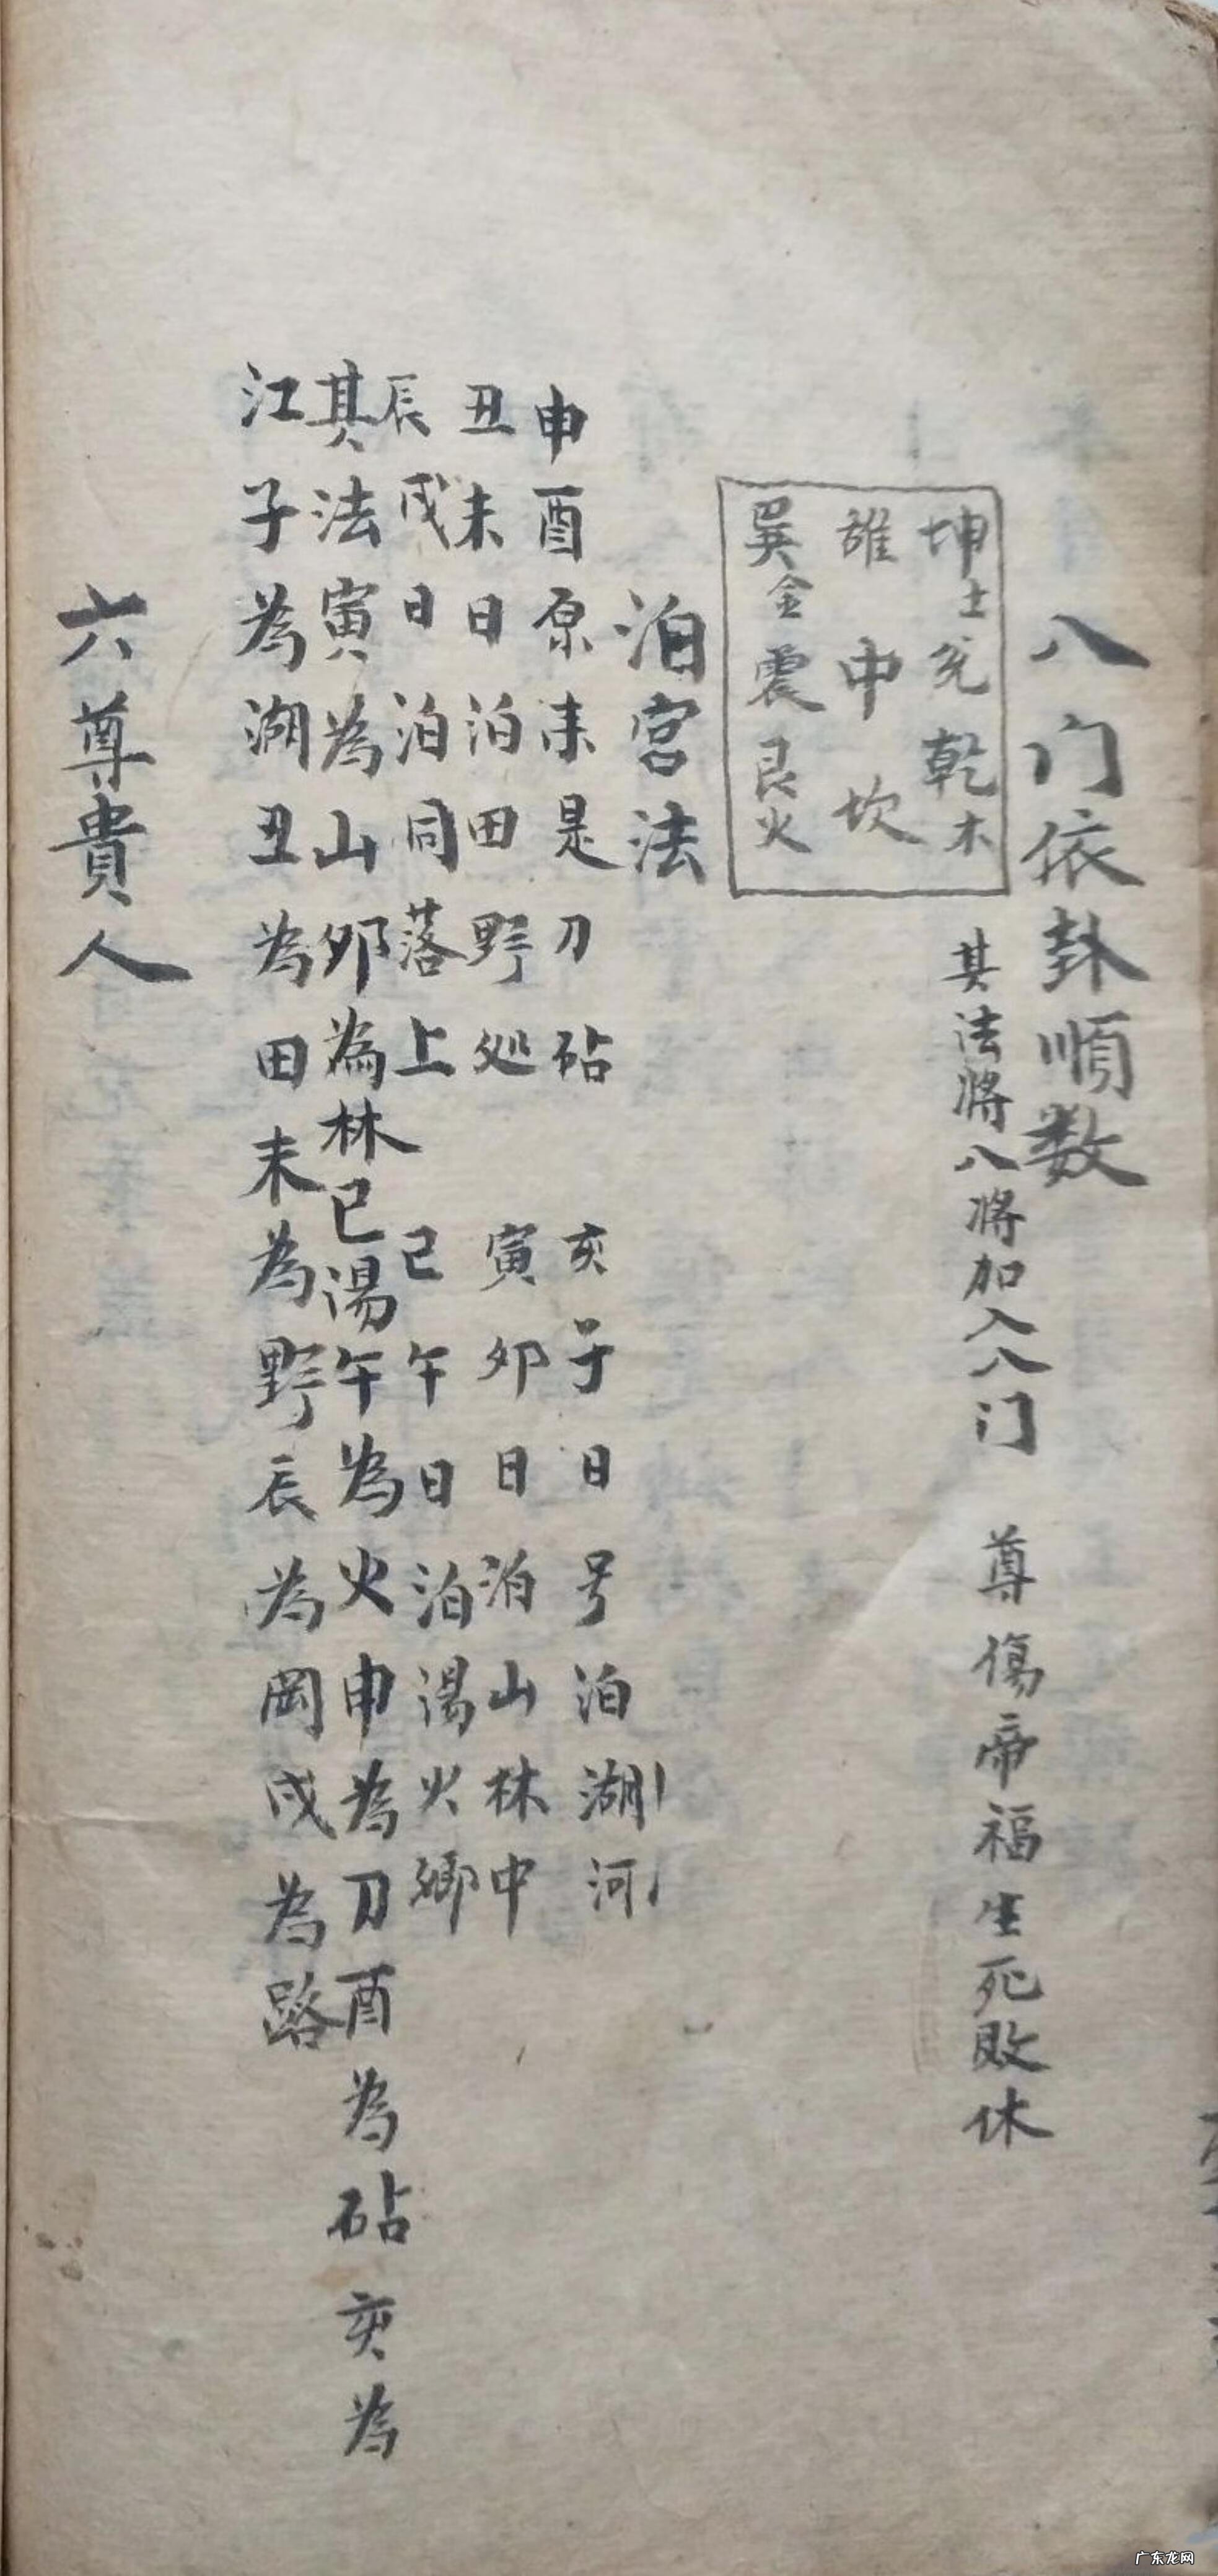 八门依卦順数
坤土兑乾木
離中坎
巽金震艮火
其法將八將加入八门 尊傷帝福生死敗休
泊宮法
申酉原来是刀砧 亥子日号泊湖河
丑未日泊田野处 寅卯日泊山林中
辰戌日泊同落上 已午日泊湯火鄉
其法寅為山卯為林已湯午為火申為刀酉為砧亥為
江子為湖丑為田未為野辰為岡戌為路
六尊貴人
广东龙网